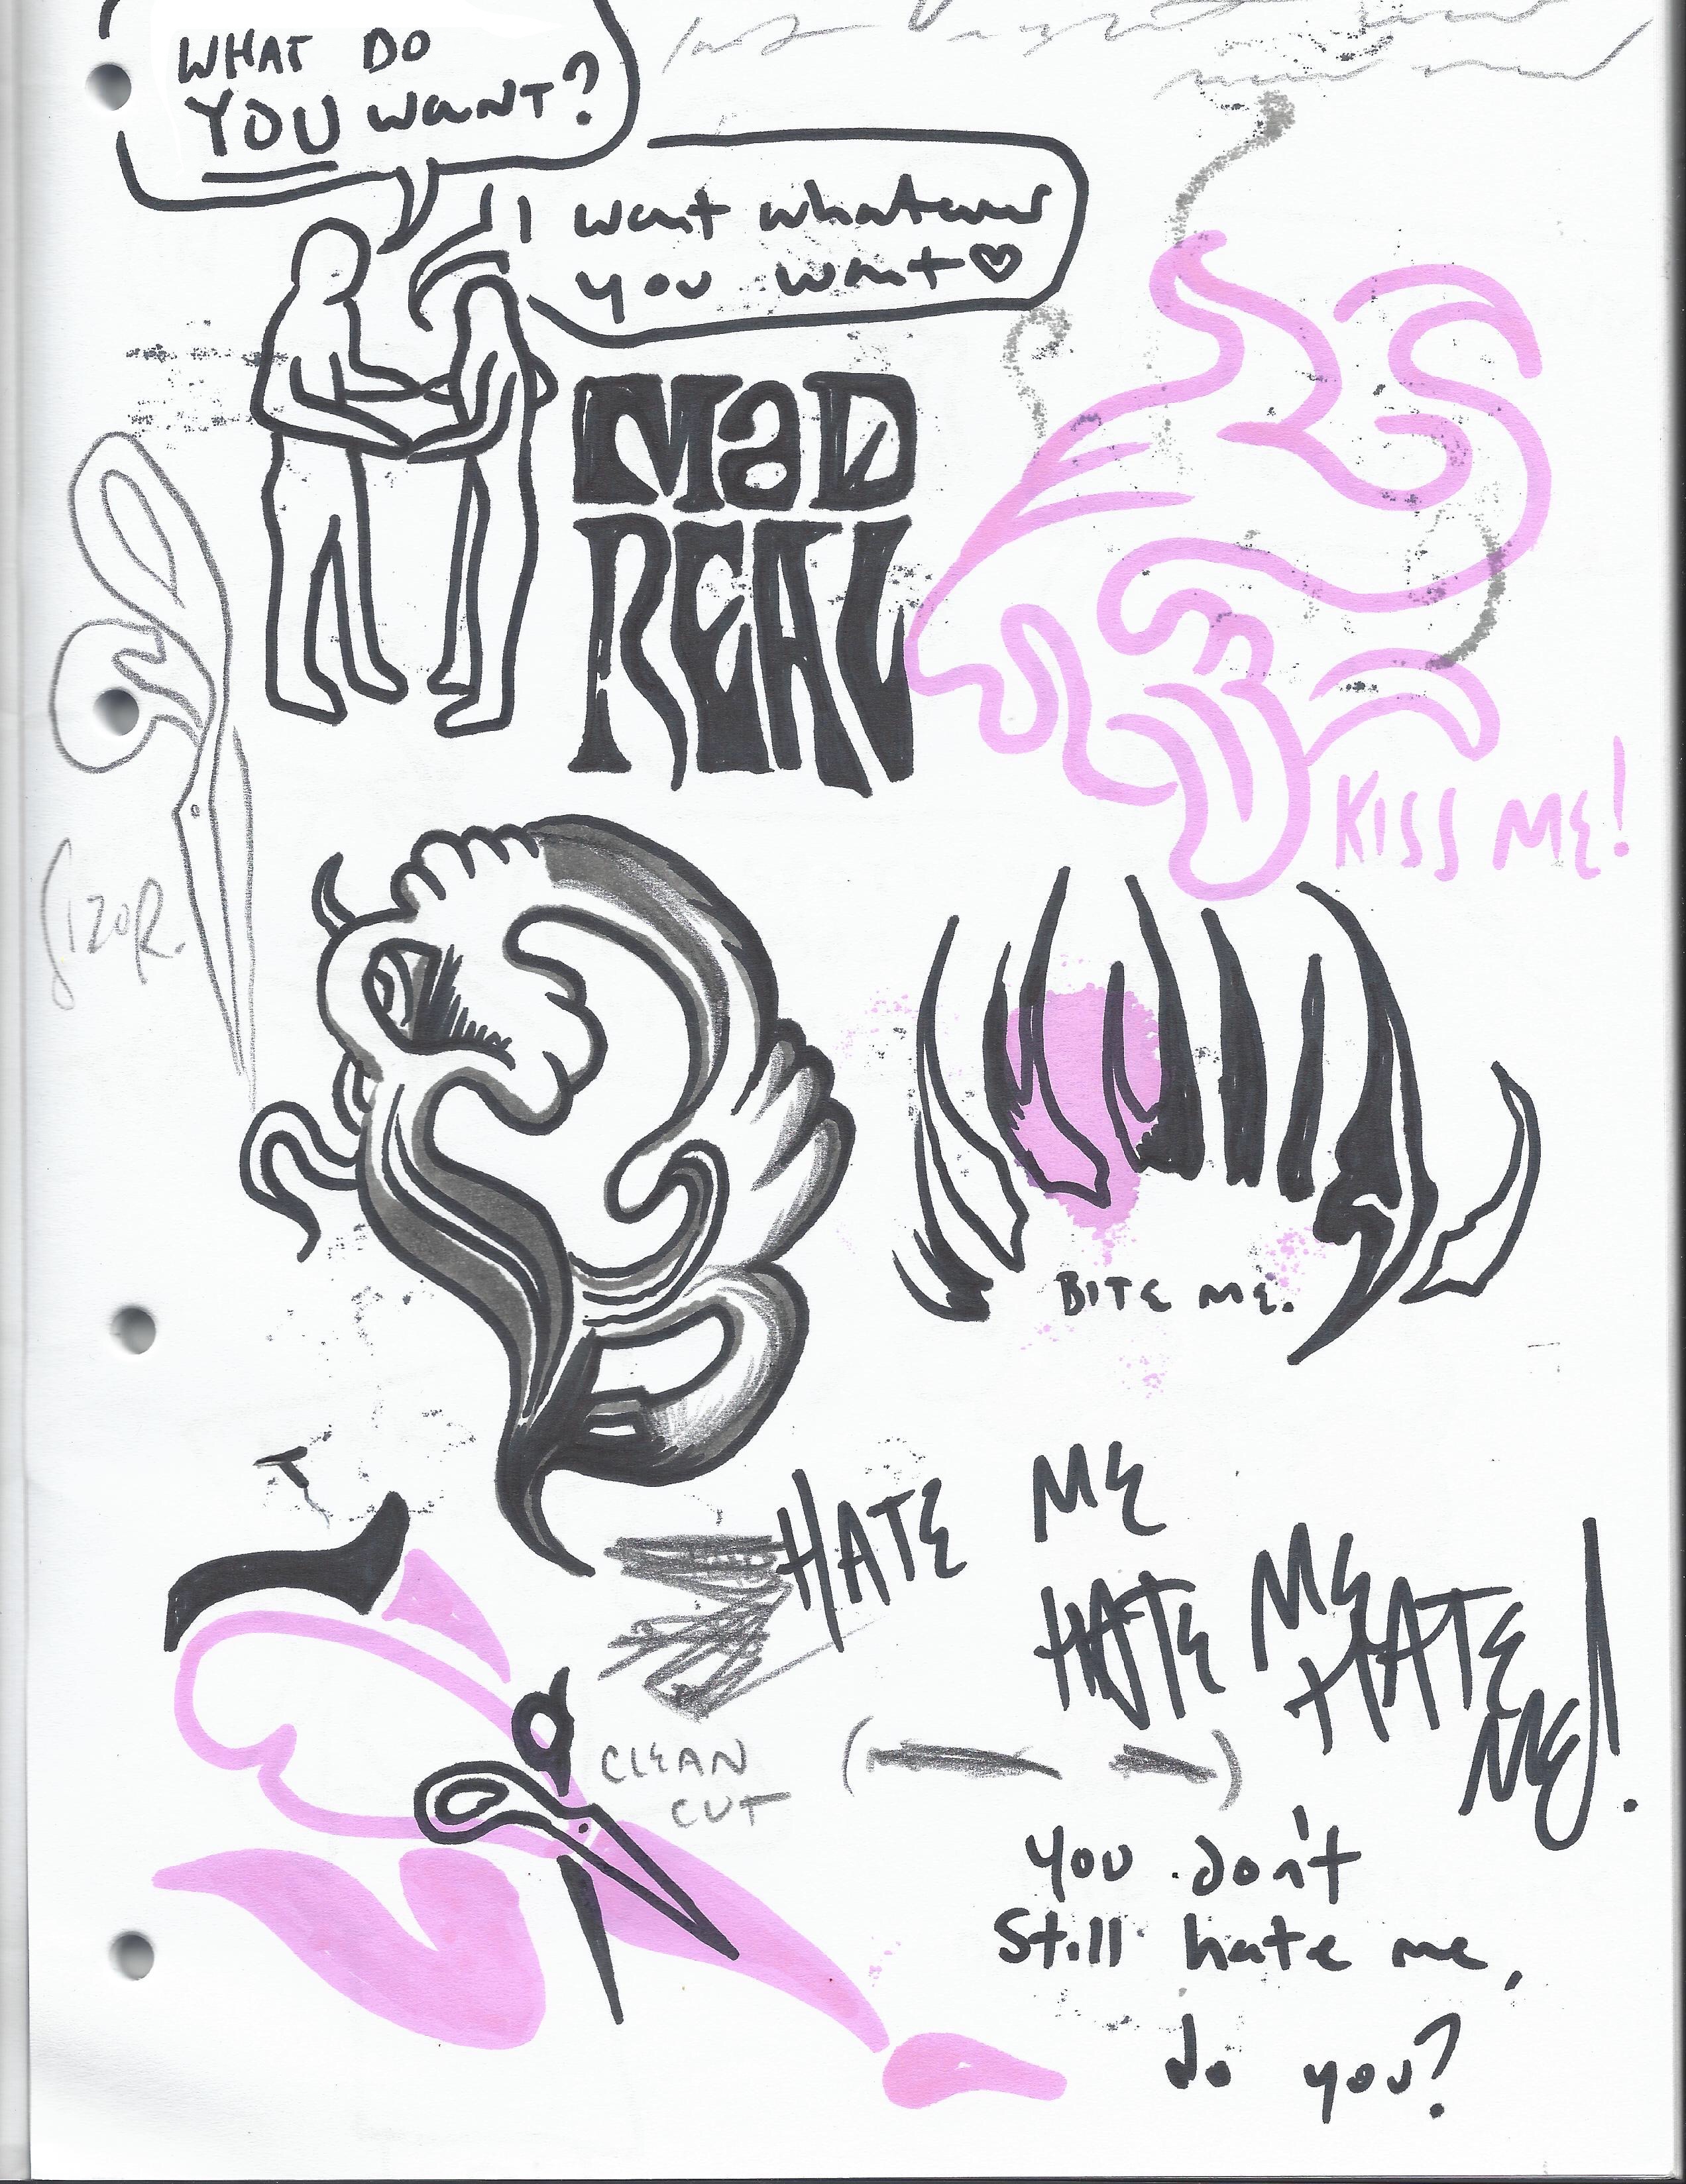 WHAT DO
YOU WANT?
I want whatever
you want♡
MaD
REAL
KISS ME!
SIZOR.
BITE ME.
HATE ME
HATE ME
HATE
ME!
CLEAN
CUT
You don't
Still hate me,
do you?